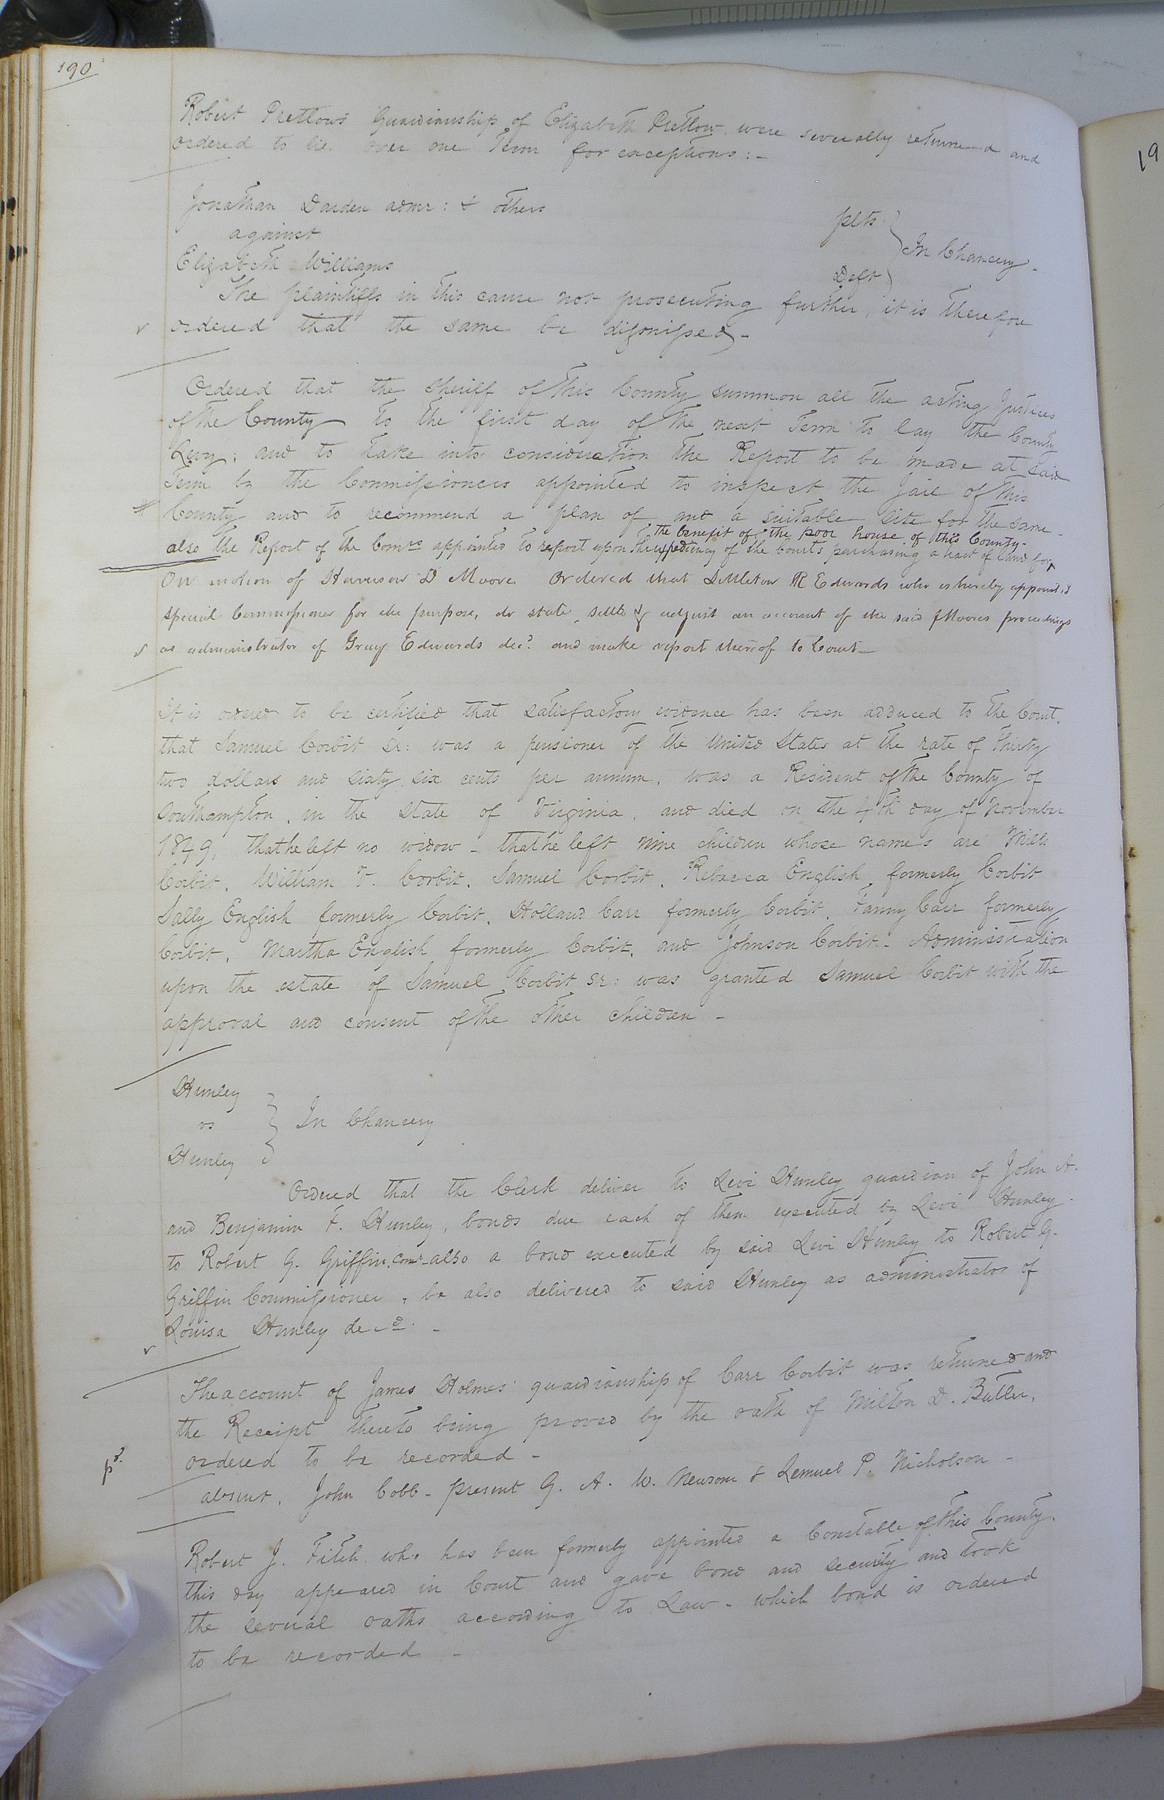 190
Robert Pretlow's Guardianship of Elizabeth Pretlow were severally returned and
ordered to lie over one Term for exceptions:-
Jonathan Darden admr: & others plts
against In Chancery-
Elizabeth Williams Deft
The plaintiffs in this cause not prosecuting further, it is therefore
ordered that the same be dismissed-
Ordered that the Sheriff of this County summon all the acting Justices
of the County to the first day of the next Term to lay the County
Levy; and to take into consideration the Report to be made at said
Term by the Commissioners appointed to inspect the Jail of this
County and to recommend a plan of and a suitable site for the same-
the benefit of the poor house of this County-
also the Report of the Comrs appointed to report upon the expediency of the Courts purchasing a tract of land for
On motion of Harrison D Moore Ordered that Littleton R Edwards who is hereby appointed
special Commissioner for the purpose, do state, settle & adjust an account of the said Moores proceedings
as administrator of Gray Edwards decd and make report thereof to Court-
It is ordered to be certified that satisfactory evidence has been adduced to the Court,
that Samuel Corbit Sr: was a pensioner of the United States at the rate of Thirty
two dollars and sixty six cents per annum, was a Resident of the County of
Southampton, in the State of Virginia, and died on the 4th day of November
1849, that he left no widow - that he left nine children whose name's are Mills
Corbit, William T. Corbit, Samuel Corbit, Rebecca English formerly Corbit
Sally English formerly Corbit, Holland Carr formerly Corbit, Fanny Carr formerly
Corbit, Martha English formerly Corbit, and Johnson Corbit- Administration
upon the estate of Samuel Corbit Sr: was granted Samuel Corbit with the
approval and consent of the other children-
Hunley
vs In Chancery
Hunley
Ordered that the Clerk deliver to Levi Hunley guardian of John A.
and Benjamin F. Hunley, bonds due each of them executed by Levi Hunley
to Robert G. Griffin, Comr also a bond executed by said Levi Hunley to Robert G.
Griffin Commissioner, be also delivered to said Hunley as administrator of
Louisa Hunley decd. -
The account of James Holmes' guardianship of Carr Corbit was returned and
the Receipt thereto being proved by the oath of Milton D. Butler,
ordered to be recorded-
absent, John Cobb- present G. A. W. Newsom & Lemuel P. Nicholson-
Robert J. Fitch who has been formerly appointed a Constable of this County,
this day appeared in Court and gave bond and security and took
the several oaths according to Law- which bond is ordered
to be recorded-